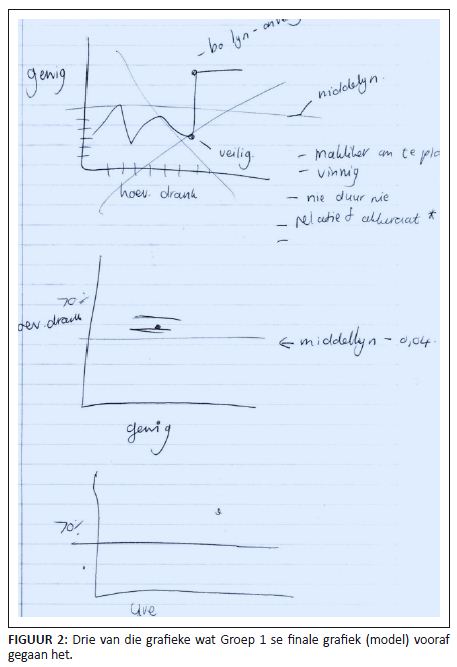 - bo lyn-
gewig
middelyn.
veilig.
hoev. drank
- makliker om te
- vinnig
- nie duur nie
- relatief akkuraat *
-
70%
oev. drank
← middellyn - 0,04.
gewig
70%
Ure
FIGUUR 2: Drie van die grafieke wat Groep 1 se finale grafiek (model) vooraf
gegaan het.